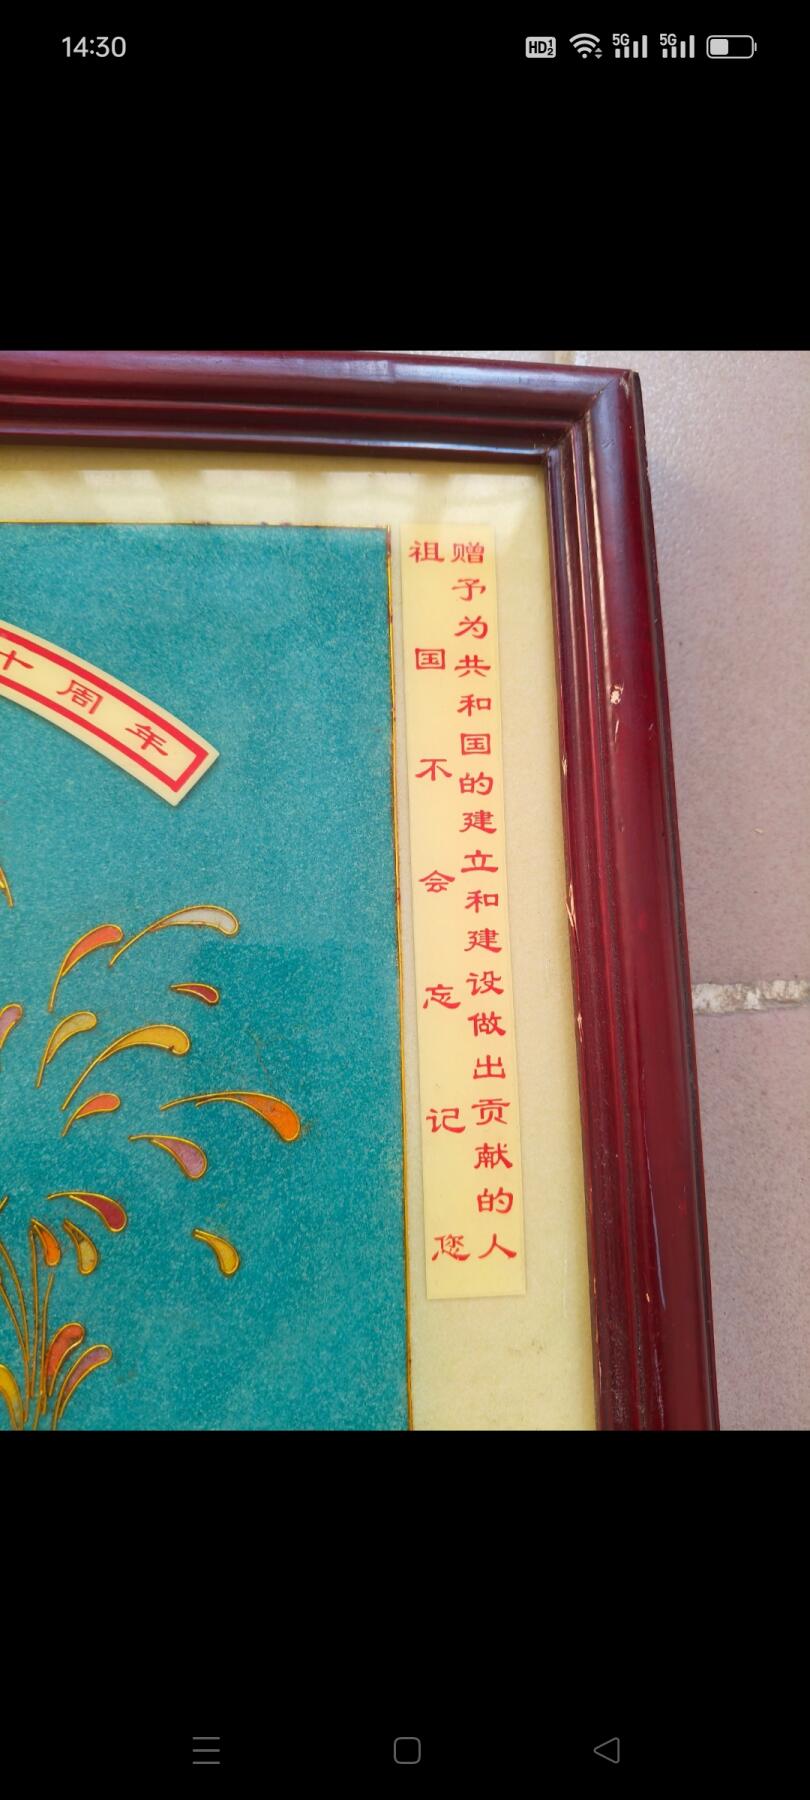 14:30
HD 1 2 5G 5G
十周年
赠予为共和国的建立和建设做出贡献的人
祖国不会忘记您